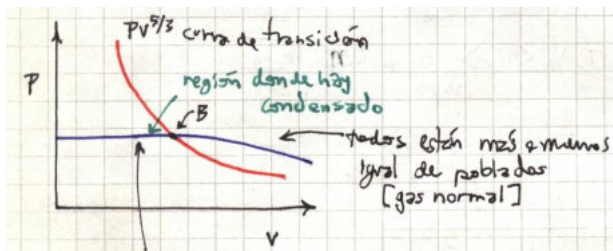 PV^5/3 curva de transición
región donde hay
condensado
P
B
todos están más o menos
igual de poblados
[gas normal]
V